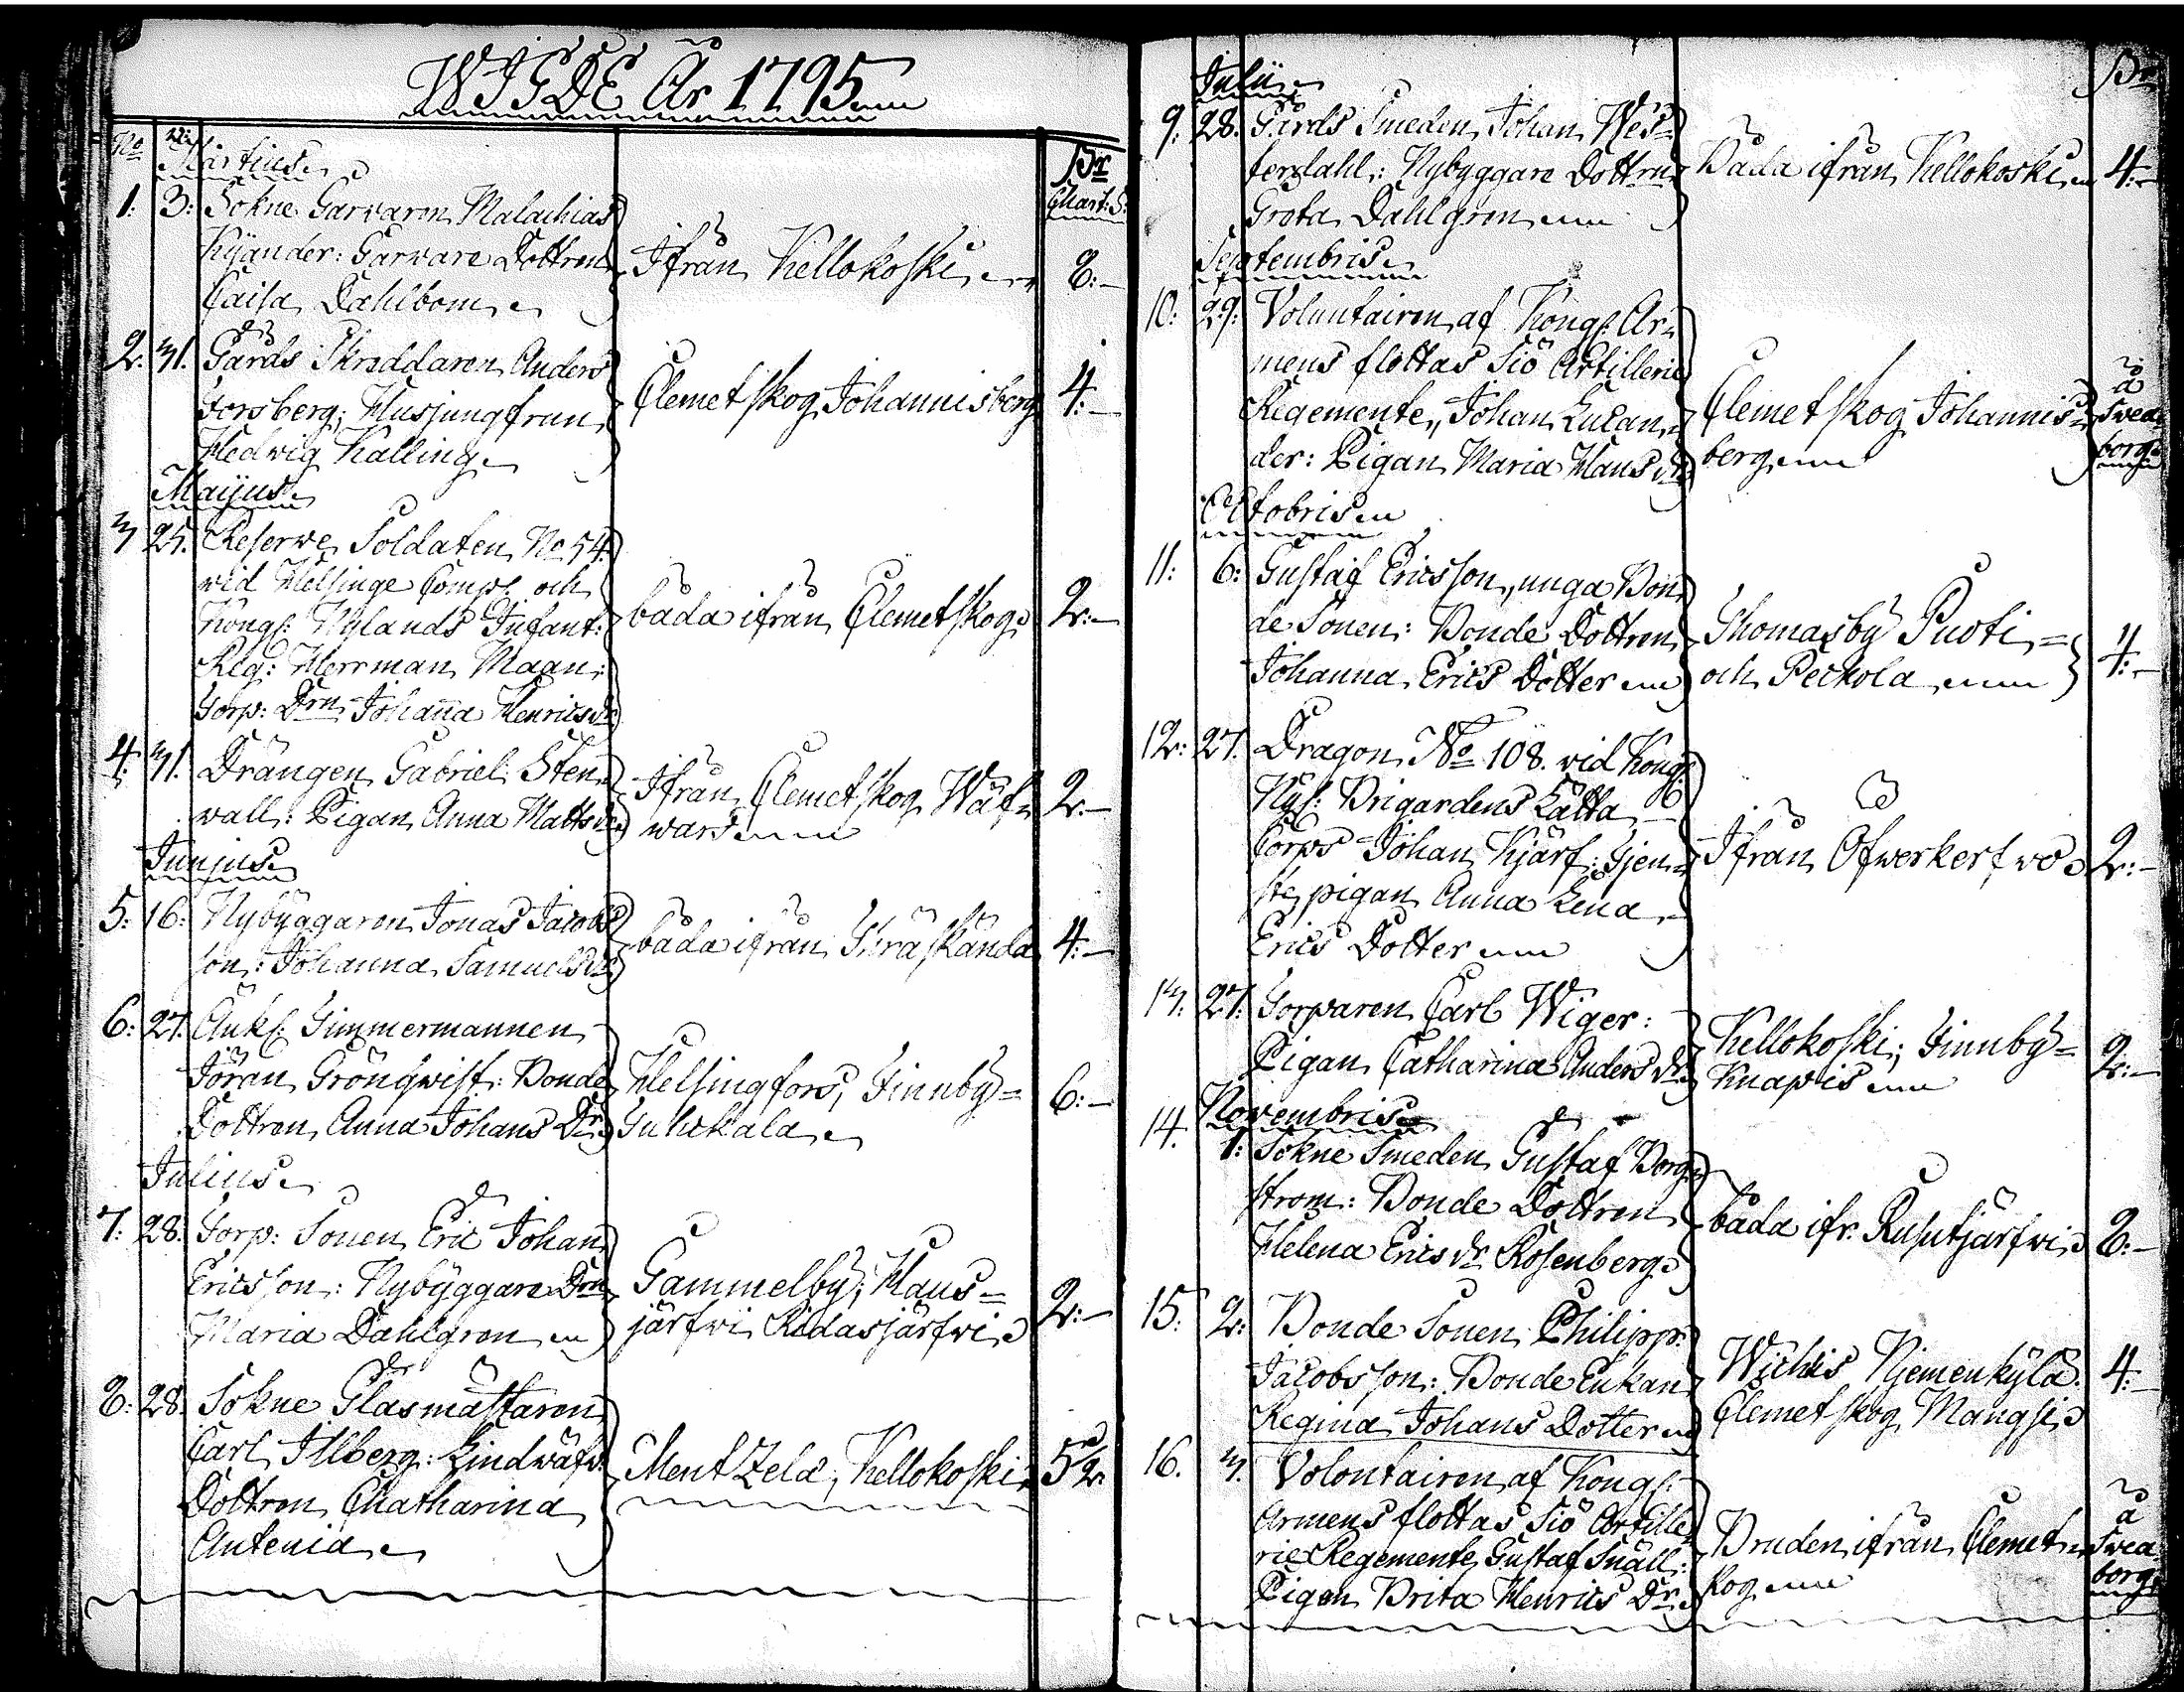 WIGDE År 1795
No
Martius
Br
Chart: S:
1: 3: Sokne Garvaren Malachias
Kyander: Garvare Dottren
Caisa Dahlbom
Ifrån Kellokoski
8:-
2. 31. Gårds Skreddaren Anders
Forsberg; Husjungfrun
Hedvig Kalling
Clemetskog Johannisberg
4:-
Maijus
3 25. Reserwe Soldaten No 54.
vid Helsinge Comp: och
Kongl: Nylands Infant:
Reg: Herrman Maan:
Torp: Drn Johanna Henricsdr
båda ifrån Clemetskog
2:-
4: 31. Drängen Gabriel Sten
wall: Pigan Anna Mattsdr
Ifrån Clemetskog Wäf
wars
2:-
Junius
5: 16: Nybyggaren Jonas Jacobs
son: Johanna Samuelsdr
båda ifrån Träskända
4:-
6: 27. Änkl: Timmermannen
Jöran Grönqwist: Bonde
Dottren Anna Johans Dr
Helsingfors; Finnby=
Juhikala
6:-
Julius
7: 28. Torp: Sonen Eric Johan
Ericsson: Nybyggare Drn
Maria Dahlgren
Gammelby; Haus=
järfvi Ridasjärfvi
2:-
8: 28. Sokne Glasmästaren
Carl Ilberg: Lindwäfv:
Dottren Chatharina
Antenia
Mentzelä; Kellokoski
5 1/2
Julii
Br
9: 28. Gårds Smeden Johan Wes=
terdahl: Nybyggare Dottren
Greta Dahlgren
Båda ifrån Kellokoski
4:-
Septembris
10: 29: Voluntairen af Kongl: Ar=
mens flottas Siö Artillerie
Regemente, Johan Lulan
der: Pigan Maria Hansdr
Clemetskog Johannis=
berg
å
Svea
borg
Octobris
11: 6: Gustaf Ericsson, unga Bon
de Sonen: Bonde Dottren
Johanna Erics Dotter
Thomasby Puoti=
och Peckola
4:-
12: 27. Dragon No 108. vid Kongl:
Nyl: Brigardens Lätta
Corps Johan Kjärf: Tjen=
ste pigan Anna Lena
Erics Dotter
Ifrån Öfwerkertwo
2:-
13. 27. Torparen Carl Wiger:
Pigan Catharina Anders Dr
Kellokoski; Finnby=
Knapis
2:-
Novembris
14. 1: Sokne Smeden Gustaf Borg
strom: Bonde Dottren
Helena Ericsdr Rosenberg
båda ifr. Rusutjärfvi
8:-
15: 2: Bonde Sonen Philipp:
Jacobsson: Bonde Enkan
Regina Johans Dotter
Wichtis Njemenkylä.
Clemetskog Mangsi
4:-
16. 3. Volontairen af Kongl:
Armens flottas Siö Artille
rie Regemente Gustaf Snäll:
Pigan Brita Henrics Dr
Bruden ifrån Clemet
skog
å
Svea
borg